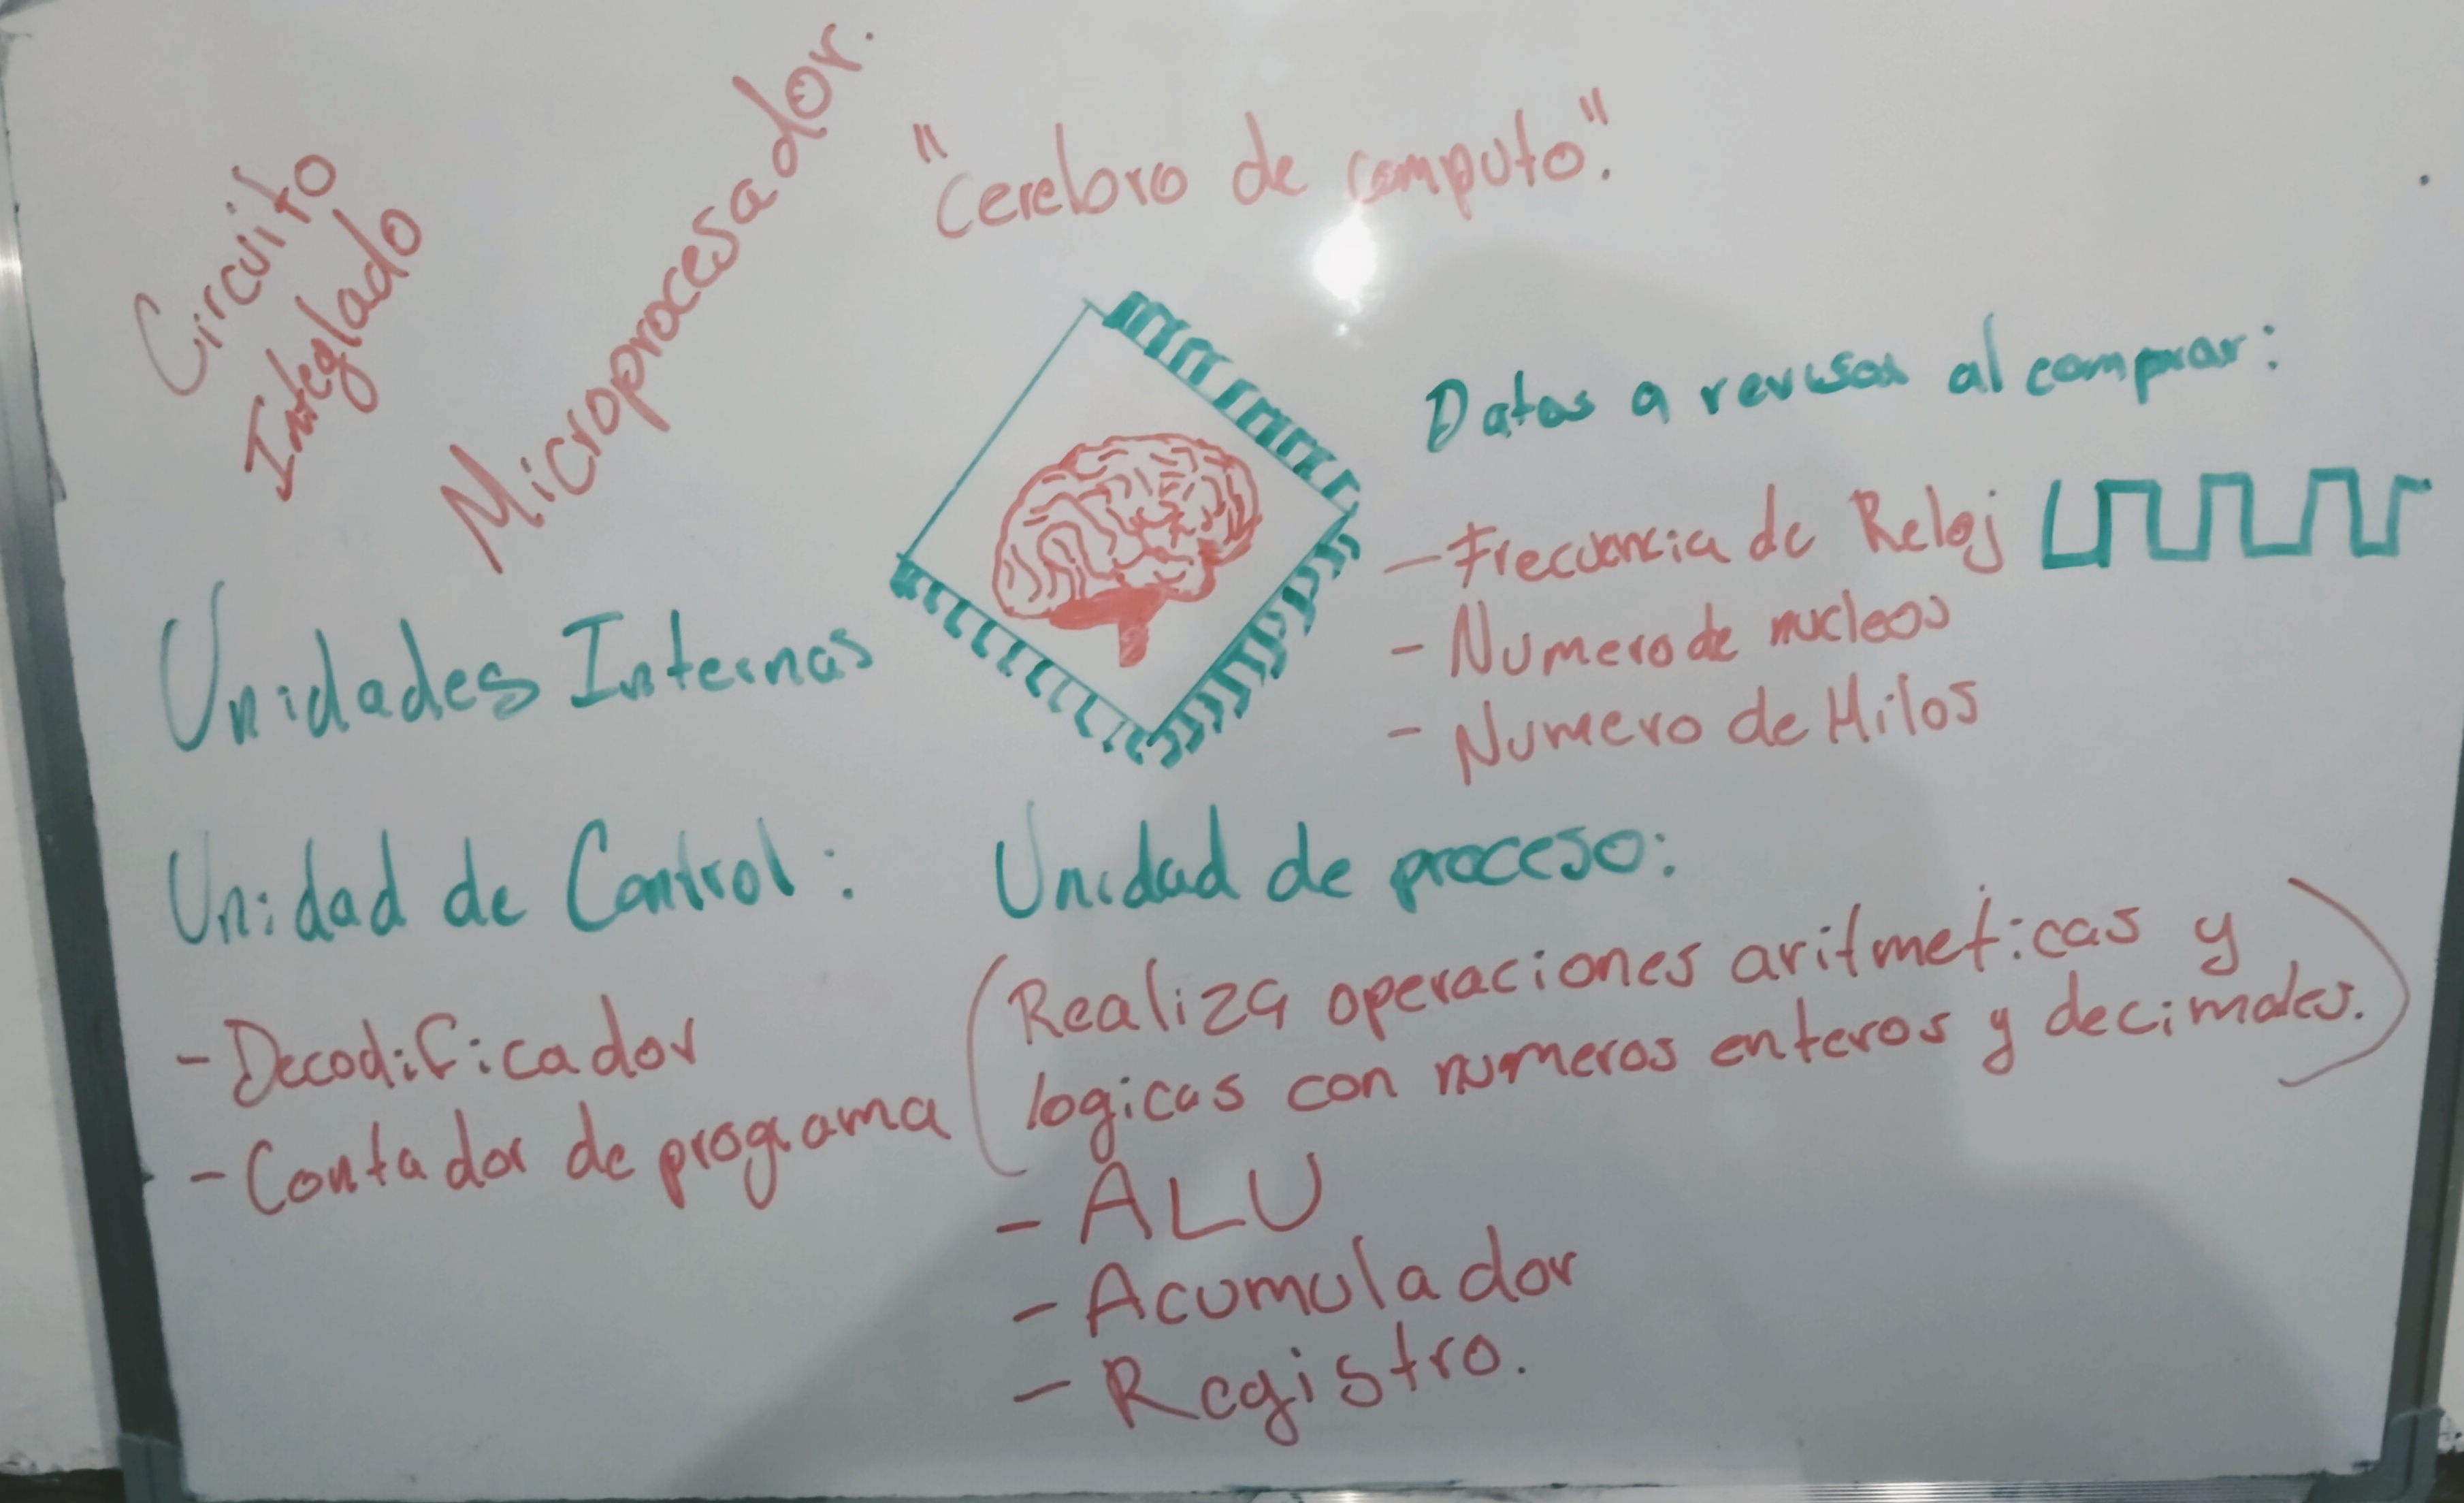 Circuito
Integlado
Microprocesador.
"Cerebro de computo".
Datos a revisar al comprar:
- Frecuencia de Reloj
- Numero de nucleos
- Numero de Hilos
Unidades Internas
Unidad de Control:
- Decodificador
- Contador de programa
Unidad de proceso:
(Realiza operaciones aritmeticas y
logicas con numeros enteros y decimales.)
- ALU
- Acumulador
- Registro.